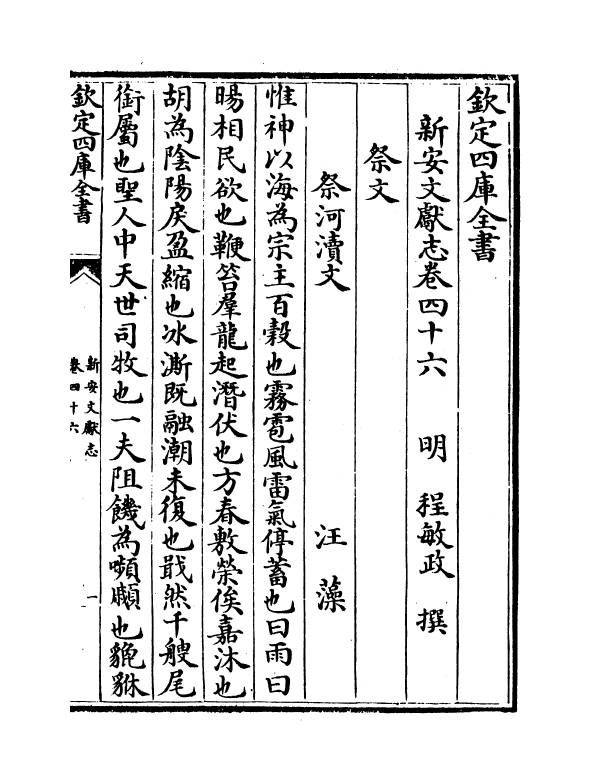 欽定四庫全書
新安文獻志卷四十六　明　程敏政　撰
祭文
祭河瀆文　汪藻
惟神以海為宗主百穀也霧雹風雷氣停蓄也曰雨曰
暘相民欲也鞭笞羣龍起潛伏也方春敷榮俟嘉沐也
胡為陰陽戾盈縮也冰澌既融潮未復也戢然千艘尾
銜屬也聖人中天世司牧也一夫阻饑為嚬顣也貔貅
欽定四庫全書
新安文獻志
卷四十六
一